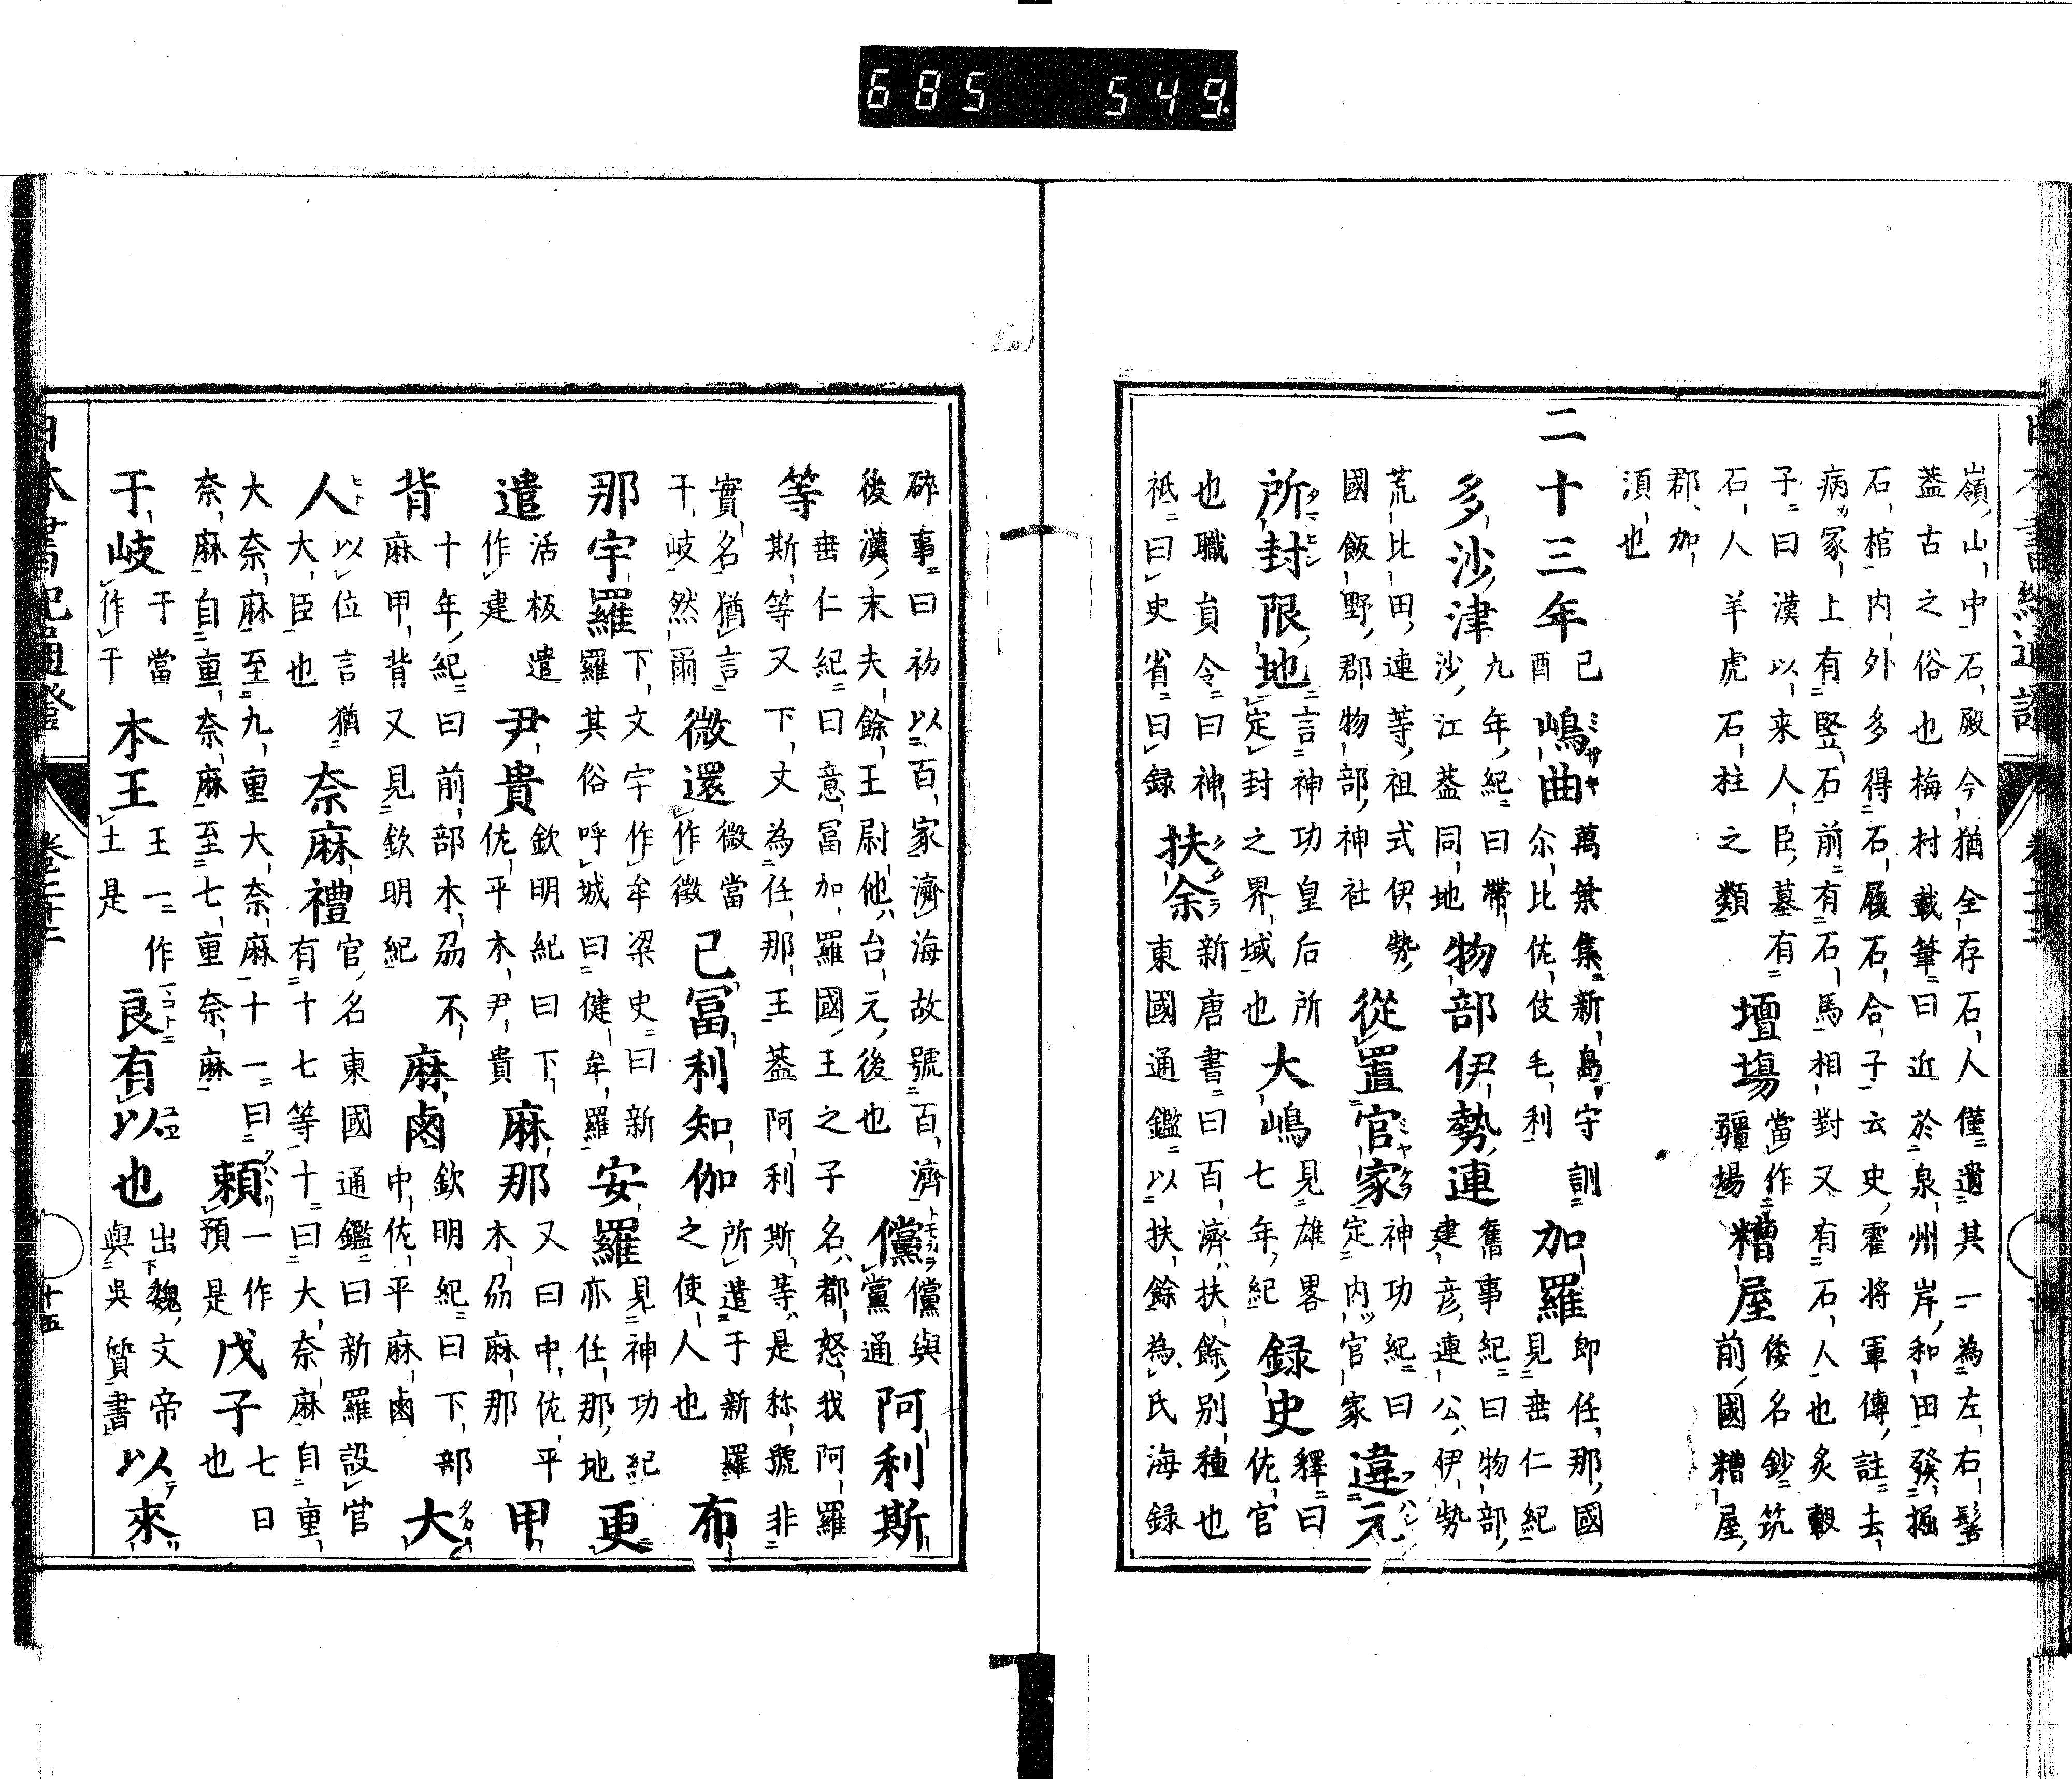 685 549.
嶺山中石殿今猶全存石人僅遺其一為左右髻
蓋古之俗也梅村載筆曰近於泉州岸和田發掘
石棺内外多得石履石合子云史霍將軍傳註去
病冢上有竪石前有石馬相對又有石人也炙轂
子曰漢以来人臣墓有
石人羊虎石柱之類
壇場
當作
疆場
糟屋
倭名鈔筑
前國糟屋
郡加
湏也
二十三年
己
酉
嶋曲
萬葉集新島守訓
尒比佐伎毛利
加羅
即任那國
見垂仁紀
多沙津
九年紀曰帶
沙江蓋同地
物部伊勢連
舊事紀曰物部
建彦連公伊勢
荒比田連等祖式伊勢
國飯野郡物部神社
從置官家
神功紀曰
定内官家
違元
所封限地
言神功皇后所
定封之界域也
大嶋
見雄畧
七年紀
録史
釋曰
佐官
也職員令曰神
祗曰史省曰録
扶余
新唐書曰百濟扶餘別種也
東國通鑑以扶餘為氏海録
碎事曰初以百家濟海故號百濟
後漢末夫餘王尉他台元後也
儻
儻與
黨通
阿利斯
等
垂仁紀曰意冨加羅國王之子名都怒我阿羅
斯等又下文為任那王蓋阿利斯等是称號非
實名猶言
干岐然爾
微還
微當
作徵
己冨利知伽
所遣于新羅
之使人也
布
那宇羅
下文宇作牟梁史曰新
羅其俗呼城曰健牟羅
安羅
見神功紀
亦任那地
更
遣
活板遣
作建
尹貴
欽明紀曰下
佐平木尹貴
麻那
又曰中佐平
木刕麻那
甲
背
十年紀曰前部木刕不
麻甲背又見欽明紀
麻鹵
欽明紀曰下部
中佐平麻鹵
大
人
以位言猶
大臣也
奈麻禮
官名東國通鑑曰新羅設官
有十七等十曰大奈麻自重
大奈麻至九重大奈麻十一曰
奈麻自重奈麻至七重奈麻
頼
一作
預是
戊子
七日
也
干岐
于當
作干
本王
王一作
土是
良有以也
出魏文帝
與吳質書
以來
日本書紀通證
卷二十二
十五